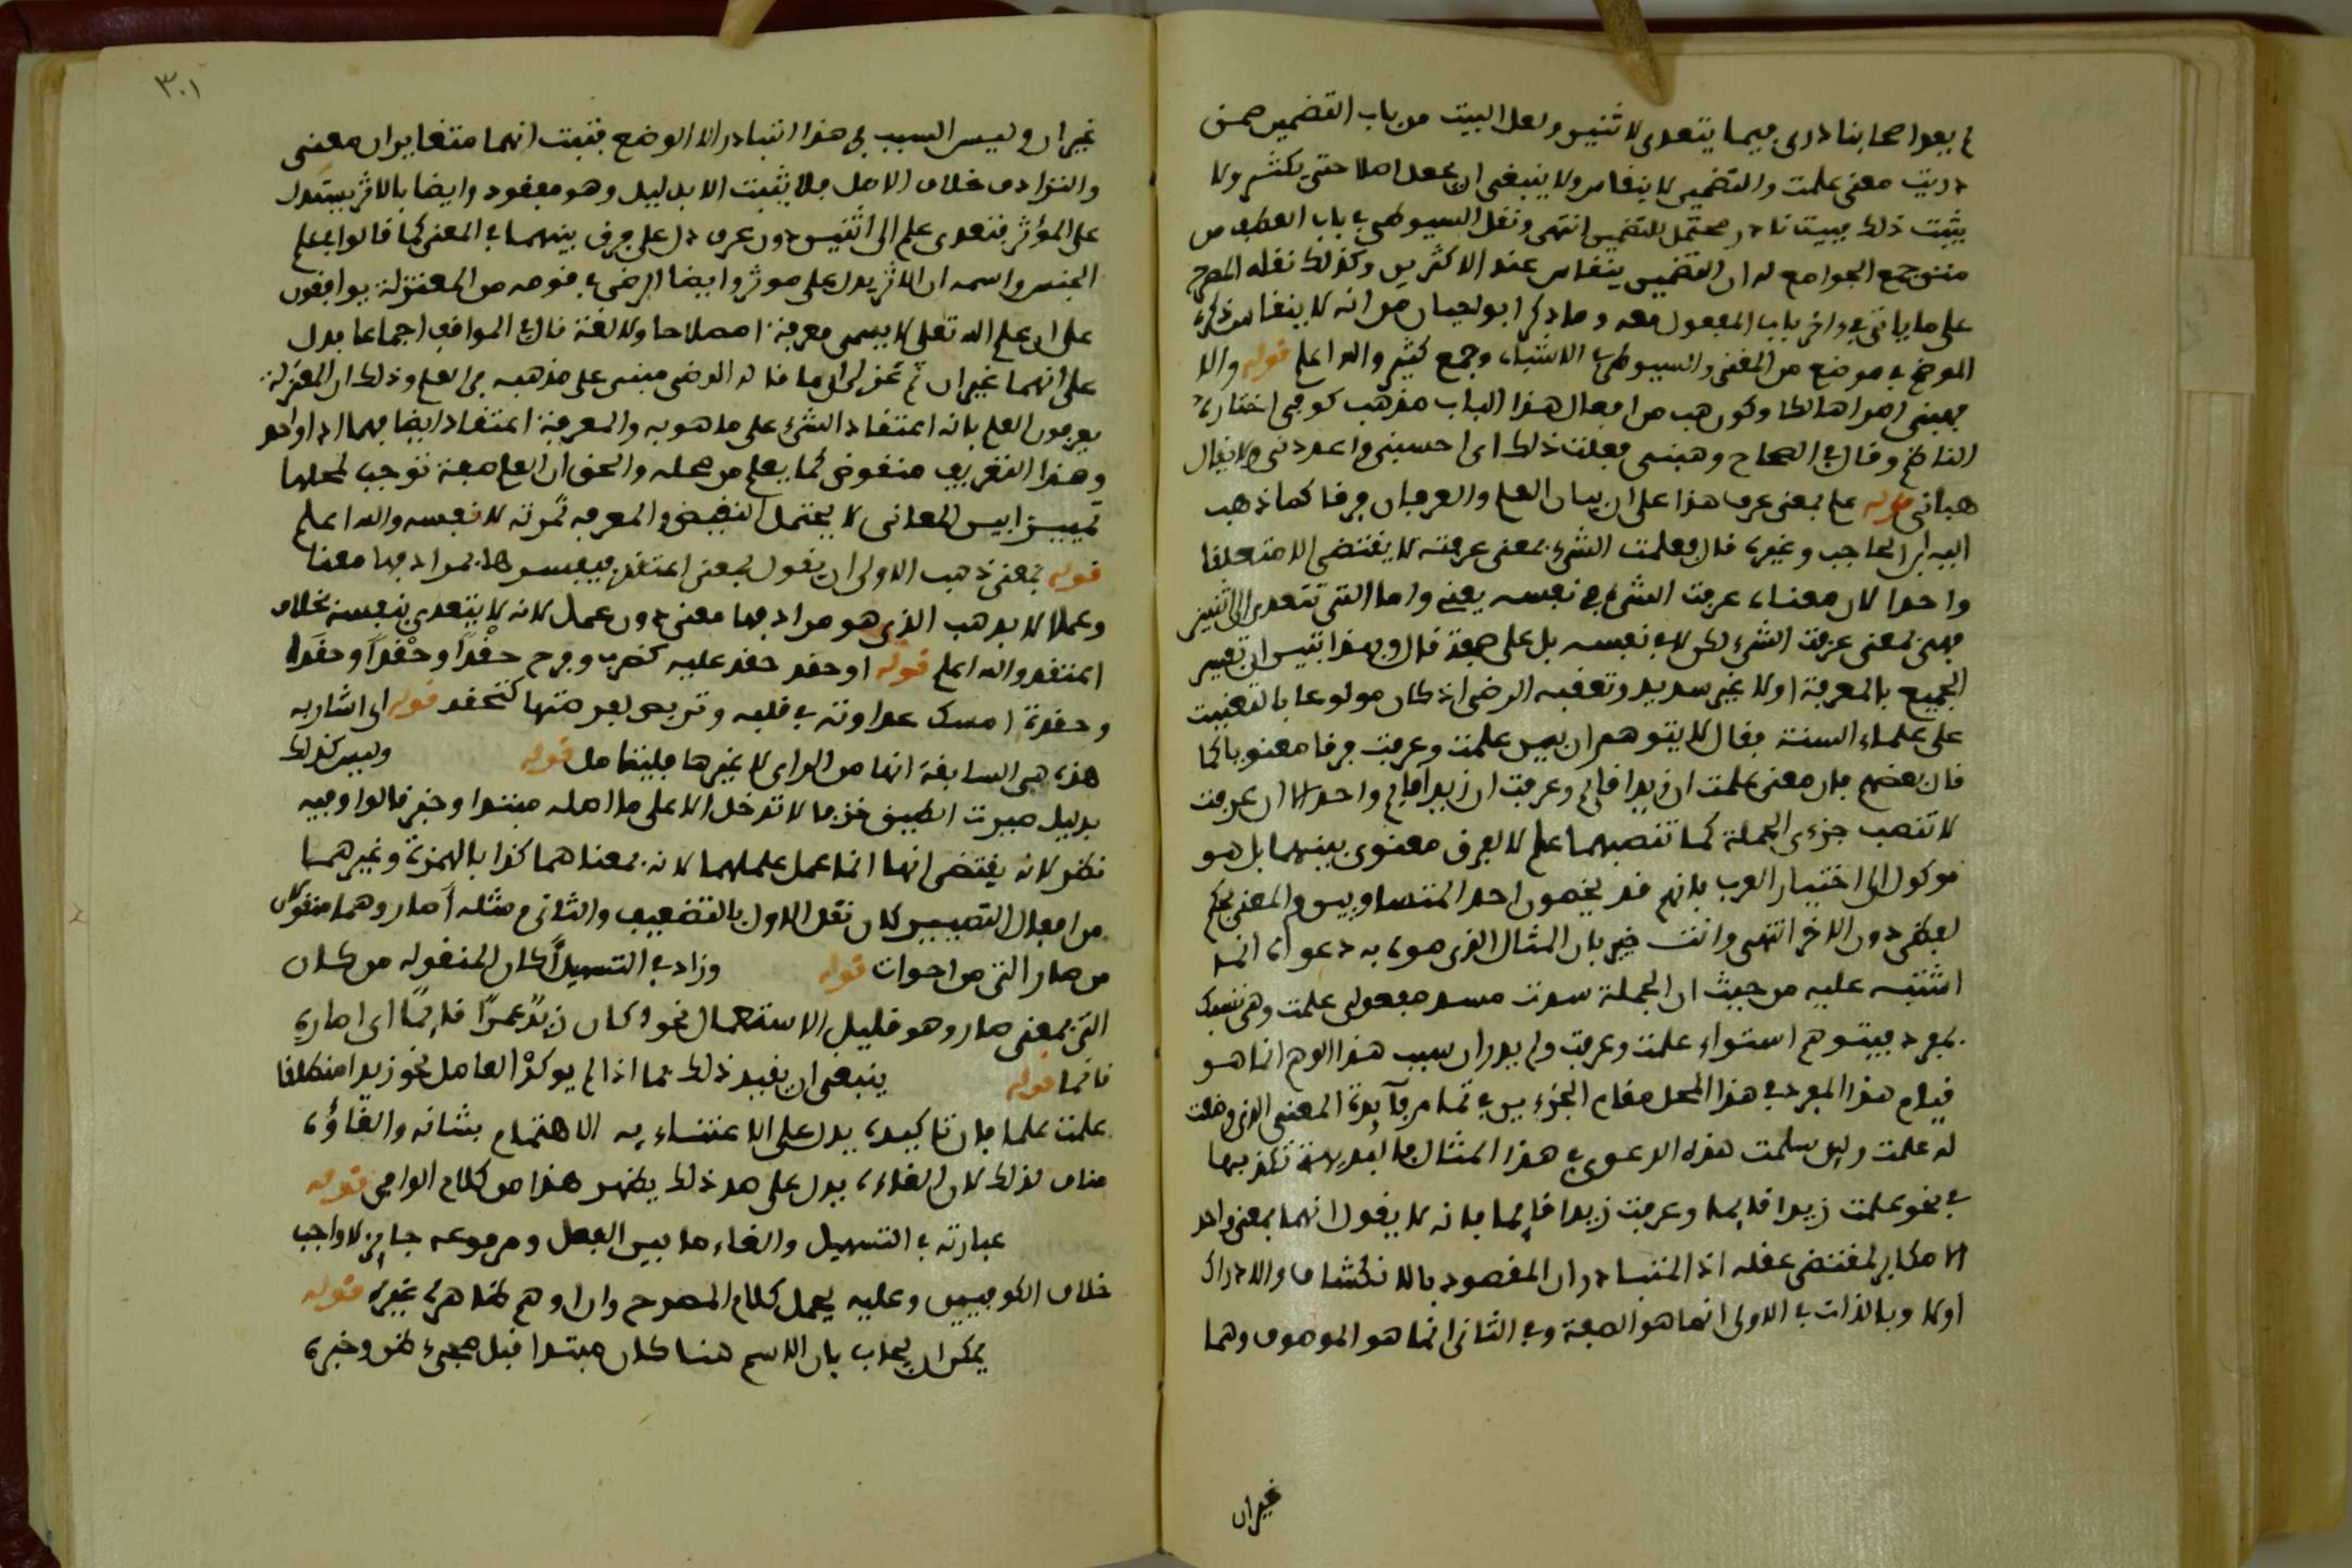 لم يعد اصحابنا درى فيما يتعدى لاثنين ولعل البيت من باب التضمين ضمن
دريت معنى علمت والتضمين لا ينقاس ولا ينبغي ان يجعل اصلا حتى يكثر ولا
يثبت ذلك ببيت نادر محتمل للتضمين انتهى ونقل السيوطي في باب العطف من
متن جمع الجوامع له ان التضمين ينقاس عند الاكثرين وكذلك نقله المصرح
على ما ياتي في واخر باب المفعول معه وما ذكر ابو حيان من انه لا ينقاس ذكره
الموضح في موضع من المغني والسيوطي في الاشباه وجمع كثير والله اعلم قوله والا
فهبني امرا هالكا وكون هب من افعال هذا الباب مذهب كوفي اختاره
الناظم وقال في الصحاح وهبني فعلت ذلك اى احسبني واعددني ولا يقال
هب اني قوله علم بمعنى عرف هذا على ان بين العلم والعرفان فرقا كما ذهب
اليه ابن الحاجب وغيره قال فعلمت الشيء بمعنى عرفته لا يقتضي الا متعلقا
واحدا لان معناه عرفت الشيء في نفسه يعني واما التي تتعدى الى اثنين
فهي بمعنى عرفت الشيء لكن لا في نفسه بل على صفة قال وبهذا تبين ان تفسير
الجميع بالمعرفة اولا غير سديد وتعقبه الرضى اذ كان مولوعا بالتعنيت
على علماء السنة فقال لا يتوهم ان بين علمت وعرفت فرقا معنويا كما
قال بعضهم فان معنى علمت ان زيدا قايم وعرفت ان زيدا قايم واحد الا ان عرفت
لا تنصب جزءى الجملة كما تنصبهما علم لا لفرق معنوى بينهما بل هو
موكول الى اختيار العرب فانهم قد يخصون احد المتساويين في المعنى بحكم
لفظي دون الاخر انتهى وانت خبير بان المثال الذى موه به دعواه انما
اشتبه عليه من حيث ان الجملة سدت مسد مفعولى علمت وهي تنسبك
بمفرد فيتوهم استواء علمت وعرفت ولم يدر ان سبب هذا الوهم انما هو
قيام هذا المفرد في هذا المحل مقام الجزءين في تمام فآيدة المعنى الذى وضعت
له علمت ولين سلمت هذه الدعوى في هذا المثال فالبديهة تكذبها
في نحو علمت زيدا قايما وعرفت زيدا قايما فانه لا يقول انهما بمعنى واحد
الا مكابر لمقتضى عقله اذ المتبادر ان المقصود بالانكشاف والادراك
اولا وبالذات في الاولى انما هو الصفة وفي الثاني انما هو الموصوف وهما
غيران
٣٠١
غيران وليس السبب في هذا التبادر الا الوضع فثبت انهما متغايران معنى
والترادف خلاف الاصل فلا يثبت الا بدليل وهو مفقود وايضا بالاثر يستدل
على المؤثر فتعدى علم الى اثنين دون عرف دل على فرق بينهما في المعنى كما قالوا في علم
الجنس واسمه ان الاثر يدل على موثر وايضا الرضى وقومه من المعتزلة يوافقون
على ان علم الله تعلى لا يسمى معرفة اصطلاحا ولا لغة قال في المواقف اجماعا فدل
على انهما غيران ثم تخز لى ان ما قاله الرضى مبني على مذهبه في العلم وذلك ان المعتزلة
يعرفون العلم بانه اعتقاد الشيء على ما هو به والمعرفة اعتقاد ايضا فهما اذا واحد
وهذا التعريف منقوض كما يعلم من محله والحق ان العلم صفة توجب لمحلها
تمييزا بين المعاني لا يحتمل النقيض والمعرفة ثمرته لا نفسه والله اعلم
قوله بمعنى ذهب الاولى ان يقول بمعنى اعتقد فيفسر حجا بمرادفها معنا
وعملا لا بذهب الذى هو مرادفها معنى دون عمل لانه لا يتعدى بنفسه بخلاف
اعتقد والله اعلم قوله او حقد حقد عليه كضرب وفرح حقدا وحقدا وحقدا
وحقدة امسك عداوته في قلبه وتربص لفرصتها كتحقد قوله اى اشار به
هذه هي السابقة انها من الراى لا غيرها فليتامل قوله وليس كذلك
بدليل صيرت الطين خزفا لا تدخل الا على ما اصله مبتدا وخبر قالوا وفيه
نظر لانه يقتضي انها انما عمل عملهما لانه بمعناهما كذا بالهمزة وغيرهما
من افعال التصيير لان نقل الاول بالتضعيف والثاني مثله أصار وهما منقولان
من صار التي من اخوات قوله وزاد في التسهيل أكان المنقوله من كان
التي بمعنى صار وهو قليل الاستعمال نحو اكان زيد عمرا قايما اى اصاره
قايما قوله ينبغي ان يقيد ذلك بما اذا لم يوكد العامل نحو زيد امنطلقا
علمت علما فان تاكيده يدل على الاعتناء به الاهتمام بشانه والغاؤه
مناف لذلك لان الغاءه يدل على ضد ذلك يظهر هذا من كلام الوافي قوله
عبارته في التسهيل والغاء ما بين الفعل ومرفوعه جايز لا واجب
خلاف الكوفيين وعليه يحمل كلام المصرح وان اوهم ظاهره غيره قوله
يمكن ان يجاب بان الاسم هنا كان مبتدا قبل مجيء ظن وخبره